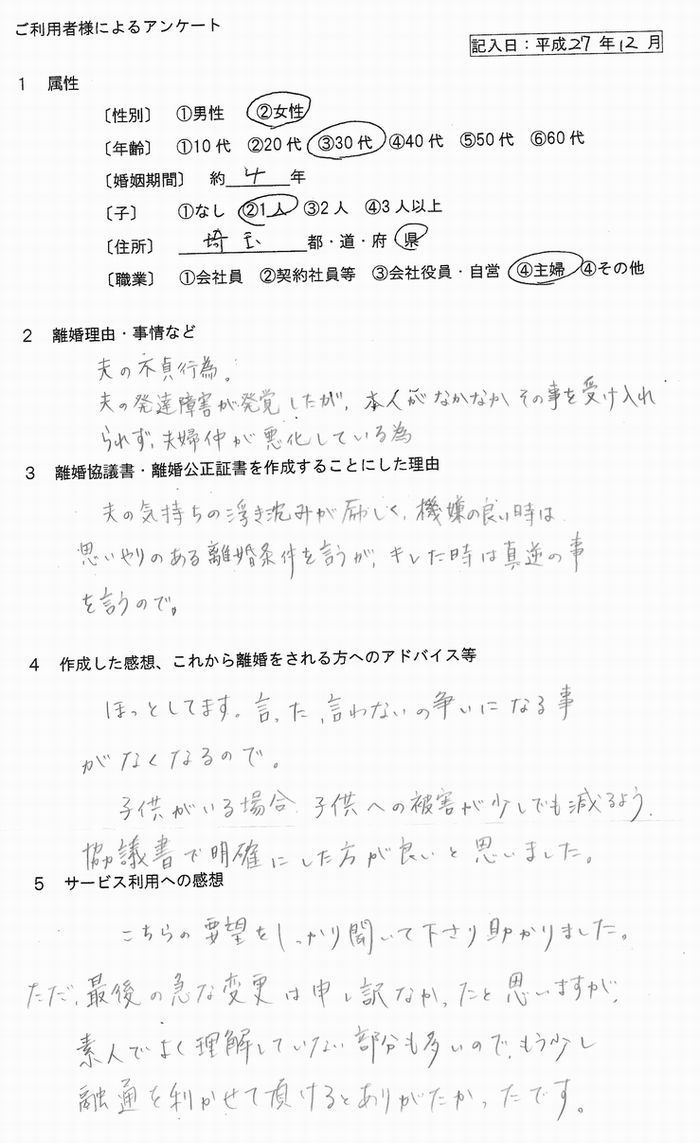 ご利用者様によるアンケート
記入日：平成27年12月
1 属性
〔性別〕 ①男性 ②女性
〔年齢〕 ①10代 ②20代 ③30代 ④40代 ⑤50代 ⑥60代
〔婚姻期間〕 約 4 年
〔子〕 ①なし ②1人 ③2人 ④3人以上
〔住所〕 埼玉 都・道・府・県
〔職業〕 ①会社員 ②契約社員等 ③会社役員・自営 ④主婦 ④その他
2 離婚理由・事情など
夫の不貞行為。
夫の発達障害が発覚したが、本人がなかなかその事を受け入れ
られず、夫婦仲が悪化している為
3 離婚協議書・離婚公正証書を作成することにした理由
夫の気持ちの浮き沈みが激しく、機嫌の良い時は
思いやりのある離婚条件を言うが、キレた時は真逆の事
を言うので。
4 作成した感想、これから離婚をされる方へのアドバイス等
ほっとしてます。言った、言わないの争いになる事
がなくなるので。
子供がいる場合、子供への被害が少しでも減るよう、
協議書で明確にした方が良いと思いました。
5 サービス利用への感想
こちらの要望をしっかり聞いて下さり助かりました。
ただ、最後の急な変更は申し訳なかったと思いますが、
素人でよく理解していない部分も多いので、もう少し
融通を利かせて頂けるとありがたかったです。